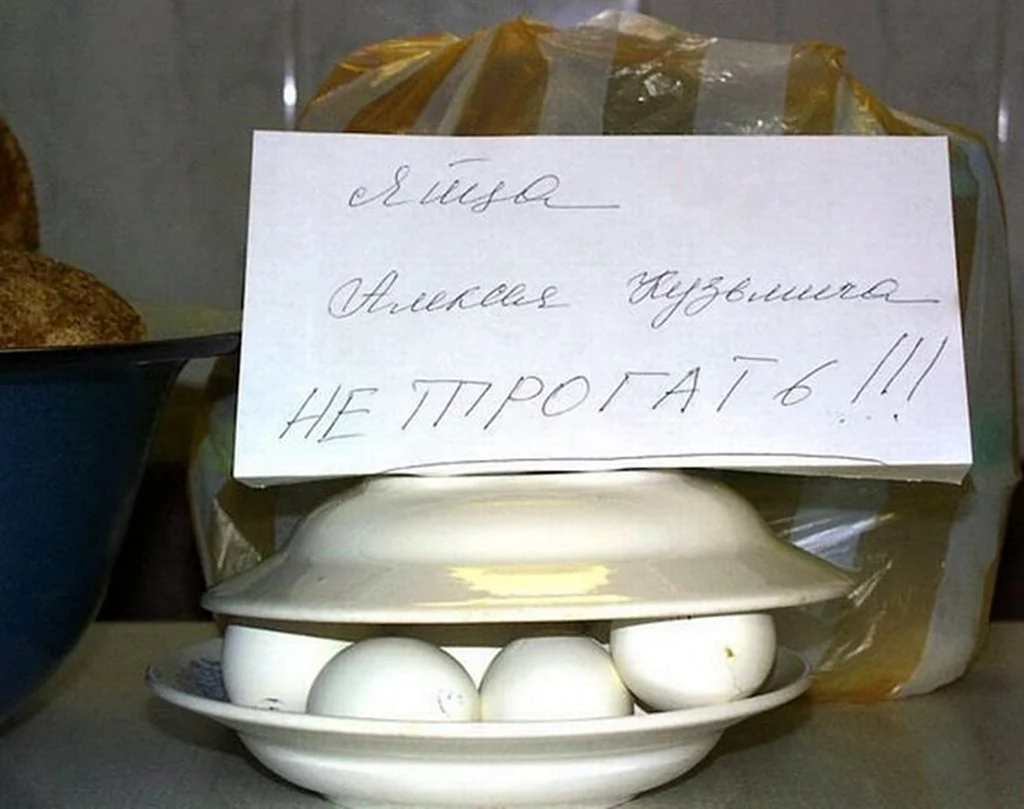 Яйца
Алексея Кузьмича
НЕ ТРОГАТЬ !!!